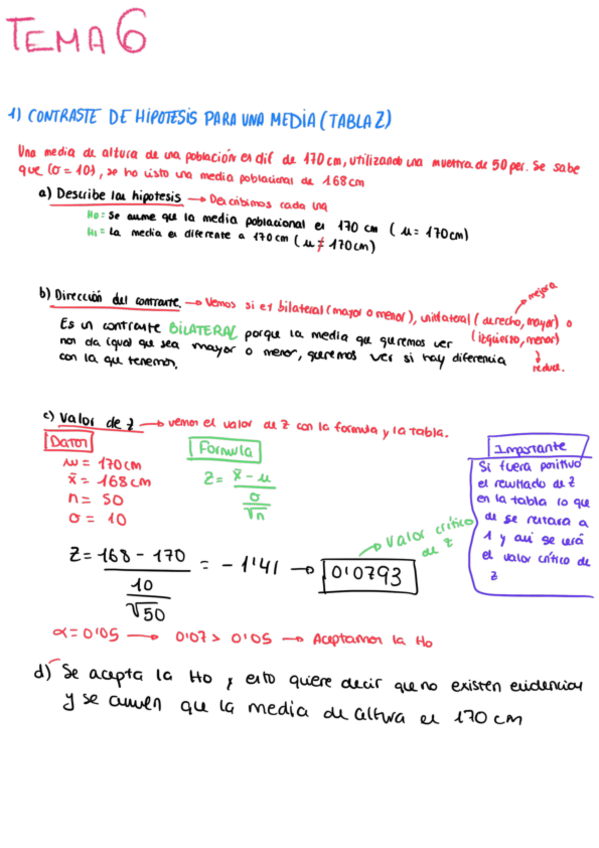 TEMA 6
1) CONTRASTE DE HIPOTESIS PARA UNA MEDIA (TABLA Z)
Una media de altura de una población es dif de 170 cm, utilizando una muestra de 50 per. Se sabe
que (σ = 10), se ha visto una media poblacional de 168 cm
a) Describe las hipotesis → Describimos cada una
Ho = Se asume que la media poblacional es 170 cm ( μ = 170cm)
H1 = La media es diferente a 170cm ( μ ≠ 170cm)
b) Dirección del contraste. → Vemos si es bilateral (mayor o menor), unilateral ( derecho, mayor) o
mejora
(izquierzo, menor)
reduce.
Es un contraste BILATERAL porque la media que queremos ver
nos da igual que sea mayor o menor, queremos ver si hay diferencia
con la que tenemos.
c) Valor de z → vemos el valor de z con la formula y la tabla.
Datos
μ = 170cm
x̄ = 168cm
n = 50
σ = 10
Formula
Z = x̄ - μ
σ
√n
Importante
Si fuera positivo
el resultado de Z
en la tabla lo que
de se restara a
1 y asi se será
el valor crítico de
z
Valor crítico
de z
Z = 168 - 170 = - 1'41 → 0'0793
10
√50
α = 0'05 → 0'07 > 0'05 → Aceptamos la Ho
d) Se acepta la Ho y esto quiere decir que no existen evidencias
y se asumen que la media de altura es 170 cm